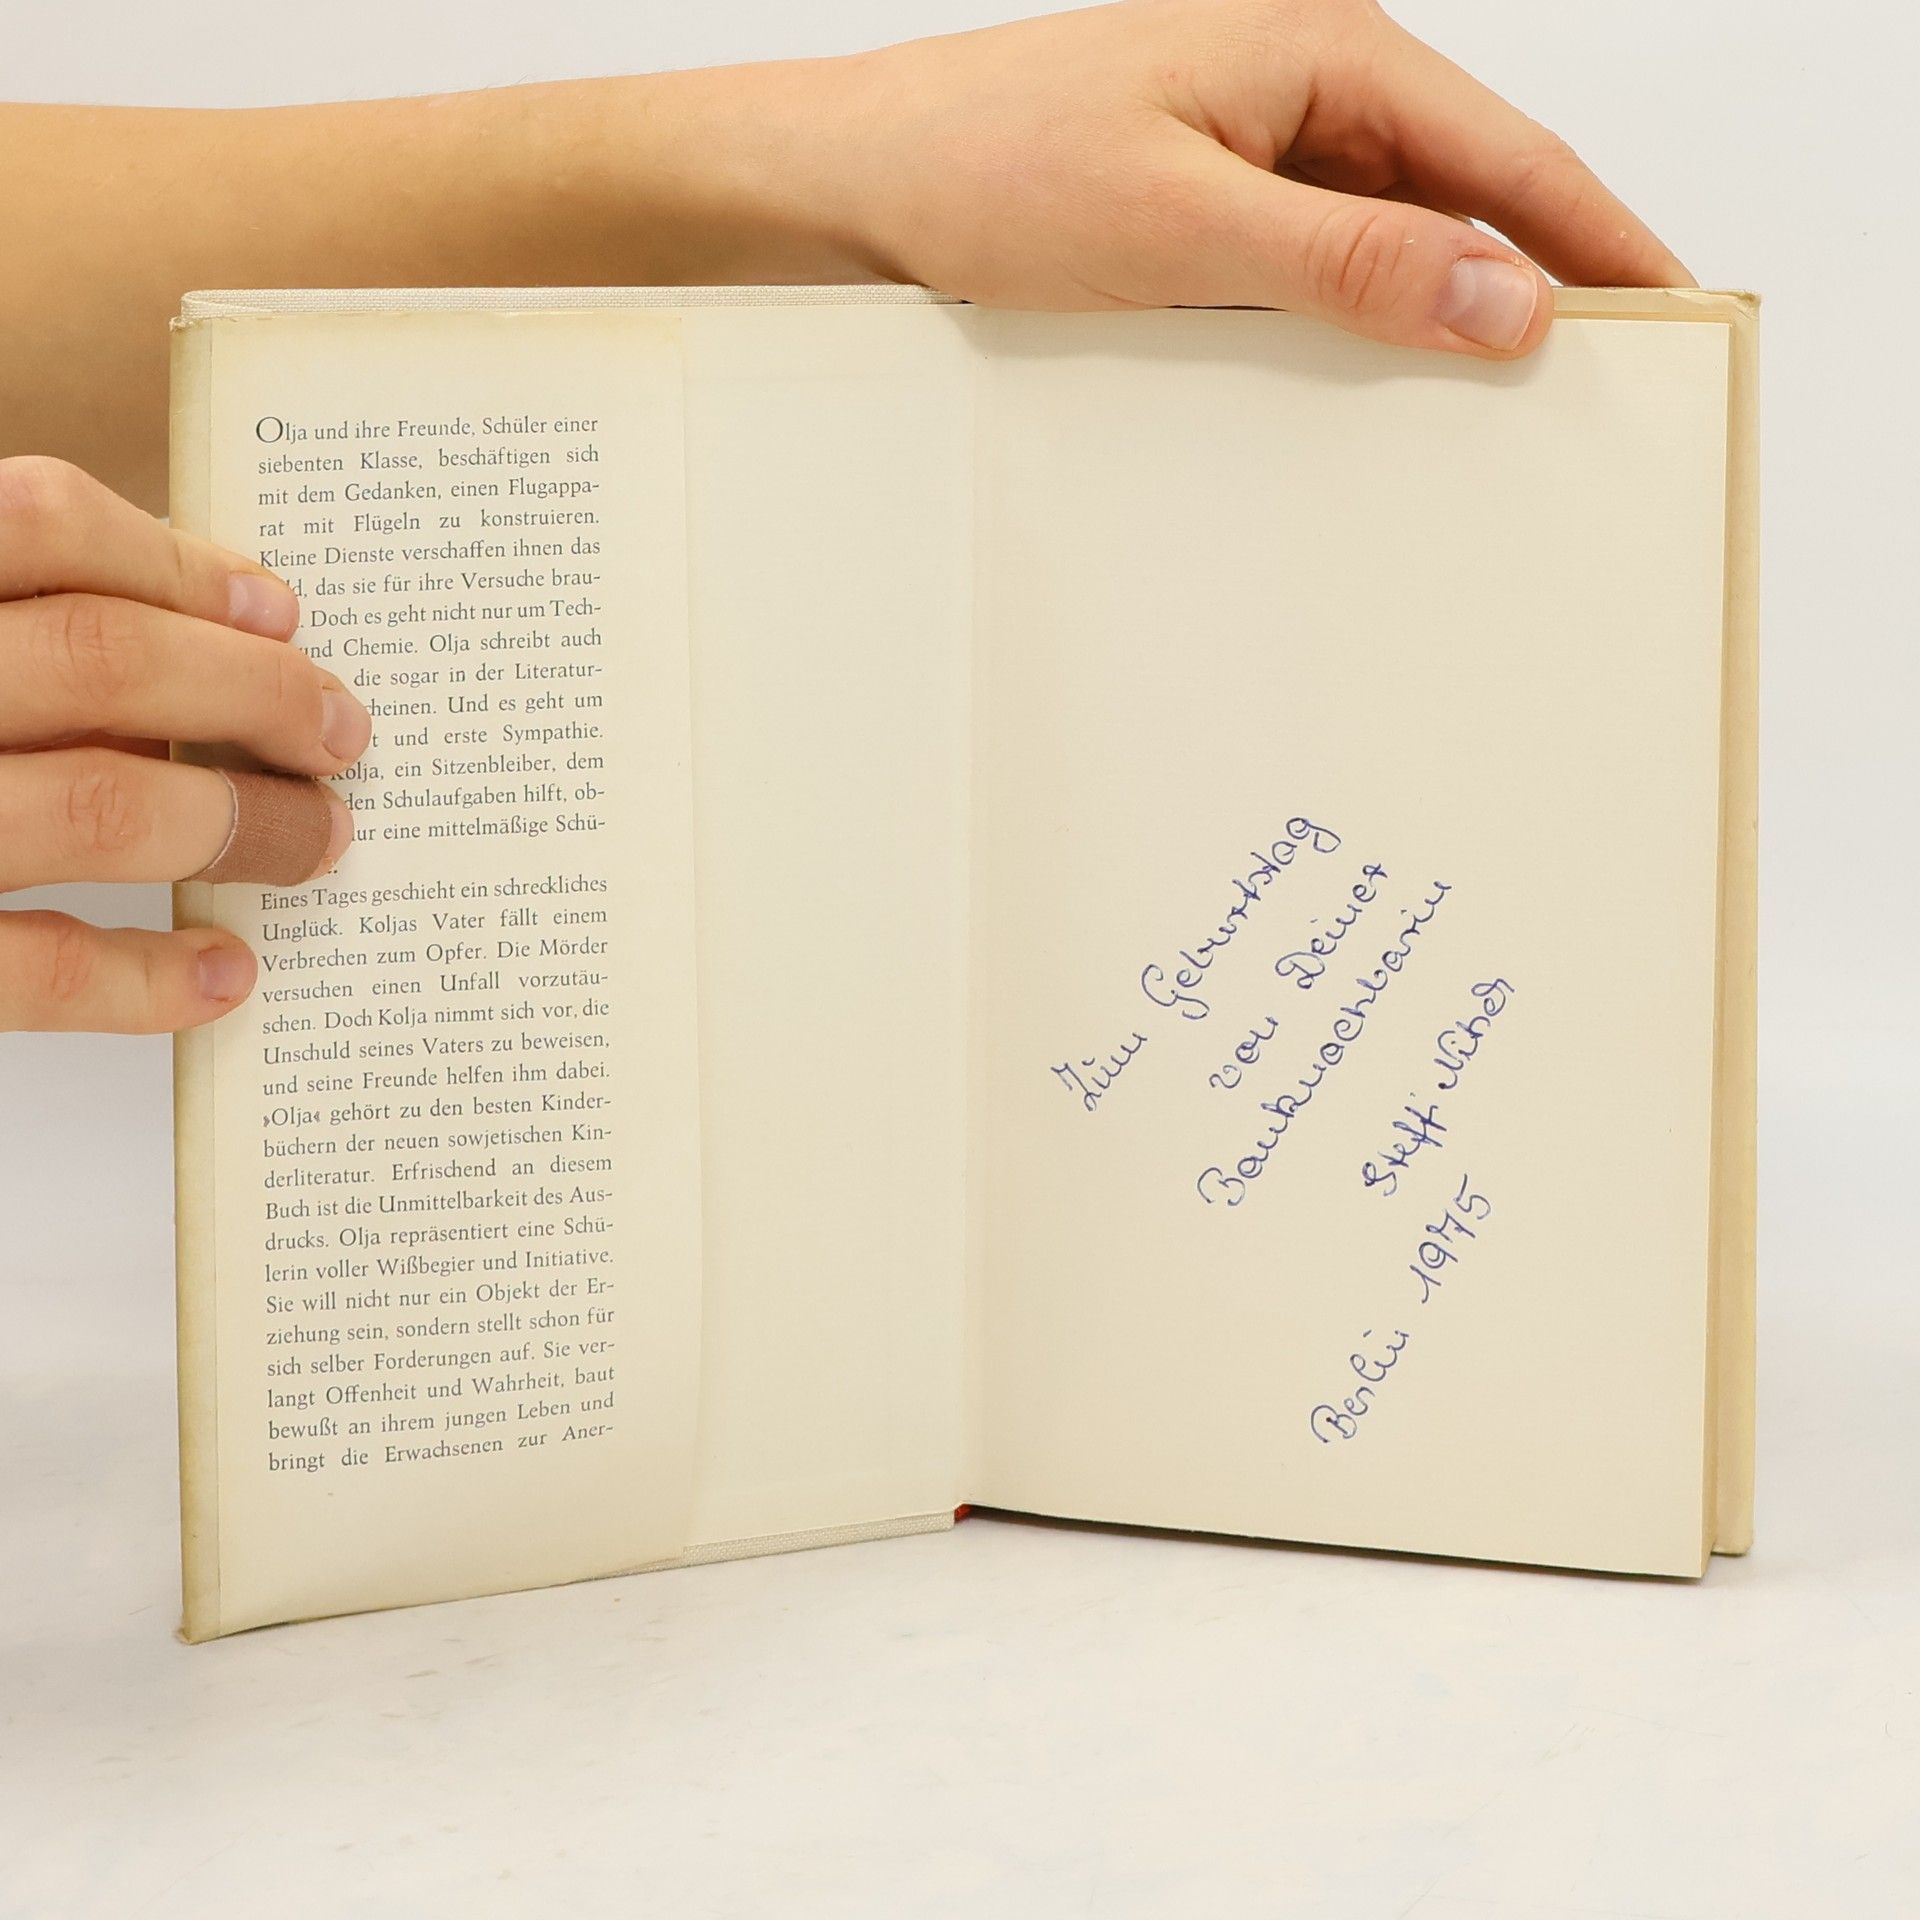 Olja und ihre Freunde, Schüler einer
siebenten Klasse, beschäftigen sich
mit dem Gedanken, einen Flugappa-
rat mit Flügeln zu konstruieren.
Kleine Dienste verschaffen ihnen das
d, das sie für ihre Versuche brau-
. Doch es geht nicht nur um Tech-
und Chemie. Olja schreibt auch
die sogar in der Literatur-
cheinen. Und es geht um
t und erste Sympathie.
Kolja, ein Sitzenbleiber, dem
den Schulaufgaben hilft, ob-
nur eine mittelmäßige Schü-
Eines Tages geschieht ein schreckliches
Unglück. Koljas Vater fällt einem
Verbrechen zum Opfer. Die Mörder
versuchen einen Unfall vorzutäu-
schen. Doch Kolja nimmt sich vor, die
Unschuld seines Vaters zu beweisen,
und seine Freunde helfen ihm dabei.
»Olja« gehört zu den besten Kinder-
büchern der neuen sowjetischen Kin-
derliteratur. Erfrischend an diesem
Buch ist die Unmittelbarkeit des Aus-
drucks. Olja repräsentiert eine Schü-
lerin voller Wißbegier und Initiative.
Sie will nicht nur ein Objekt der Er-
ziehung sein, sondern stellt schon für
sich selber Forderungen auf. Sie ver-
langt Offenheit und Wahrheit, baut
bewußt an ihrem jungen Leben und
bringt die Erwachsenen zur Aner-
Zum Geburtstag
von Deiner
Banknachbarin
Steffi
Berlin 1975